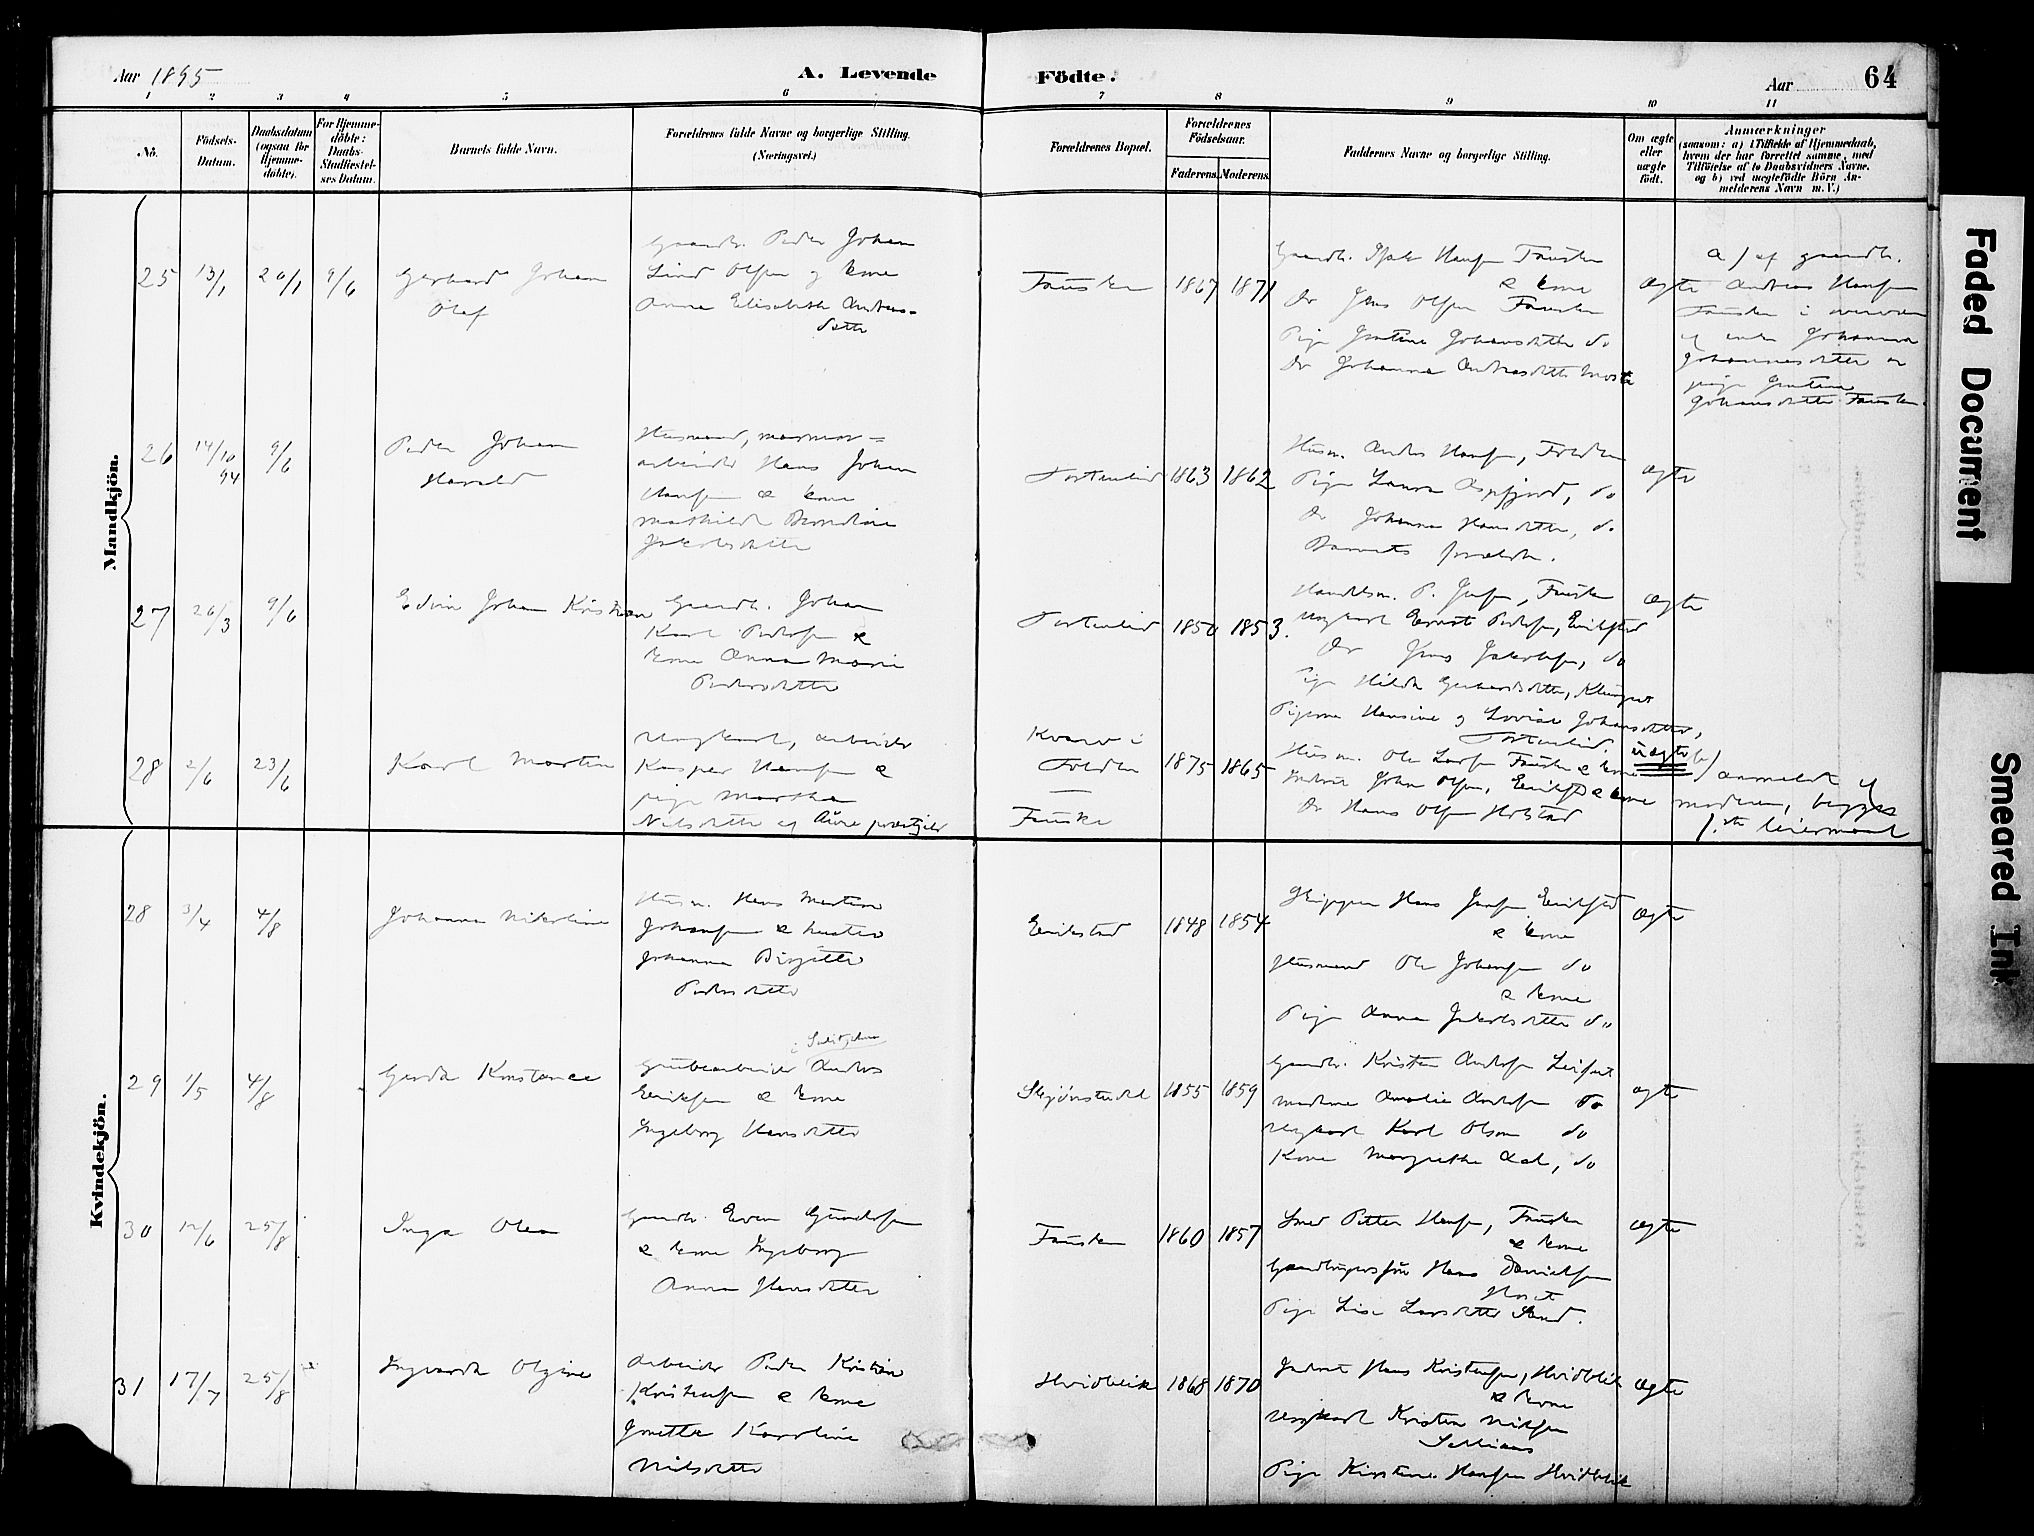 Aar 1895
A. Levende
Födte.
Aar
64
1 2 3 4 5 6 7 8 9 10 11
No.
Födsels-
Datum.
Daabsdatum
(ogsaa for
Hjemme-
döbte).
For Hjemme-
döbte:
Daabs-
Stadfæstel-
ses Datum.
Barnets fulde Navn.
Forældrenes fulde Navne og borgerlige Stilling.
(Næringsvei.)
Forældrenes Bopæl.
Forældrenes
Födselsaar.
Faderens.
Moderens.
Faddernes Navne og borgerlige Stilling.
Om ægte
eller
uægte
födt.
Anmærkninger
(saasom: a) i Tilfælde af Hjemmedaab,
hvem der har forrettet samme, med
Tilföielse af to Daabsvidners Navne,
og b) ved uægtefödte Börn An-
melderens Navn m. V.)
Mandkjön.
25 13/1 20/1 9/6
Gerhard Johan
Olaf
Gaardb. Peder Johan
Lind Olsen og kone
Anna Elisabeth Andreas-
datter
Fausken 1867 1871
Gaardb. Isak Hansen Fausken
& kone
do Jens Olsen Fausken
Pige Johansdatter do
do Johanna Andreasdatter
ægte
a) af gaardb.
Andreas Hansen
Fausken i
af enke Johanna
Johannesdatter og
pige
Johansdatter Fausken
26 14/10 94 9/6
Peder Johan
Harald
Husmand, marmor=
arbeider Hans Johan
Hansen & kone
Mathilde Berndine
Jakobsdatter
Tortenlid 1863 1862
Husm. Anders Hansen,
Pige Laura Aspfjord, do
do Johanna Hansdatter, do
Barnets forældre.
ægte
27 26/3 9/6
Edvin Johan Kristian
Gaardb. Johan
Karl Pedersen &
kone Anna Marie
Pedersdatter
Tortenlid 1850 1853.
Handelsm. P. Jensen, Fausken
Ungkarl Ernst Pedersen, Erikstad
do Jens Jakobsen, do
Pige Hilda Gerhardsdatter, Klungset
Pigerne Hansine og Lovise Johansdatter,
Tortenlid.
ægte
28 2/6 23/6
Karl Martin
Ungkarl, arbeider
Kasper Hansen &
pige Martha
Nilsdatter af Aure præstgjeld
Kvarv i
Folden
—
Fauske
1875 1865
Husm. Ole Larsen Fausken & kone
Inderst Johan Olsen, Erikstad & kone
do Hans Olsen Holstad
uægte
b) anmeldt af
moderen, begges
1.ste leiermaal
Kvindekjön.
28 3/4 4/8
Johanna Nikoline
Husm. Hans Martin
Johansen & hustru
Johanna Birgitte
Pedersdatter
Erikstad 1848 1854
Skipper Hans Jensen Erikstad
& kone
Husmand Ole Johansen do
& kone
Pige Anna Jakobsdatter do
ægte
29 1/5 4/8
Gerda Konstance
i Sulitjelma
Grubearbeider Anders
Eriksen & kone
Ingeborg Hansdatter
Skjönstudal 1855 1859
Gaardb. Kristen Andersen Leifset
Madame Amalie Andersen do
Ungkarl Karl Olsen do
Kone Margrethe Dal, do
ægte
30 12/6 25/8
Inga Olea
Gaardb. Even Gundersen
& kone Ingeborg
Anna Hansdatter
Fausken 1860 1857
Smed Petter Hansen, Fausken
& kone
Gaardbruger Hans Danielsen
Pige Lise Larsdatter Sund.
ægte
31 17/7 25/8
Ingvarda Olgine
Arbeider Peder Kristian
Kristensen & kone
Jonetta Karoline
Nilsdatter
Hvidblik 1868 1870
Inderst Hans Kristensen, Hvidblik
& kone
Ungkarl Kristen Nilsen
Pige Kirstine Hansen Hvidblik
ægte
Faded Document
Smeared Ink